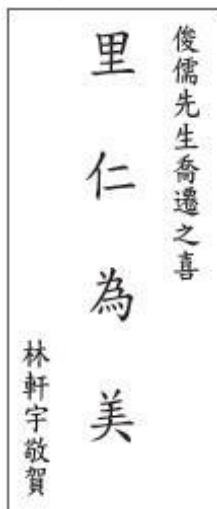 俊儒先生喬遷之喜
里仁為美
林軒宇敬賀